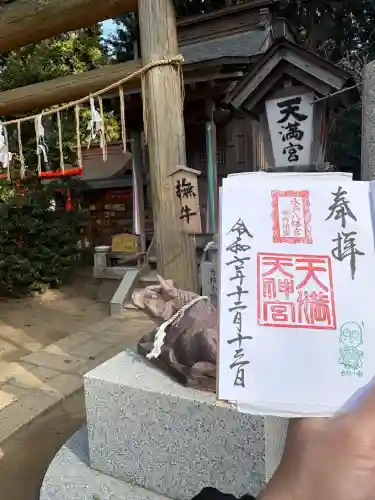 天満宮
撫牛
奉拝
水戸八幡宮
天満
天神宮
令和六年十二月十三日